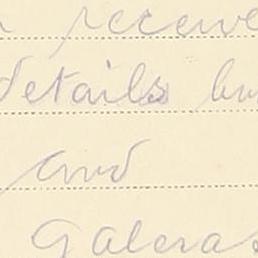 receive
details
and
Galeras